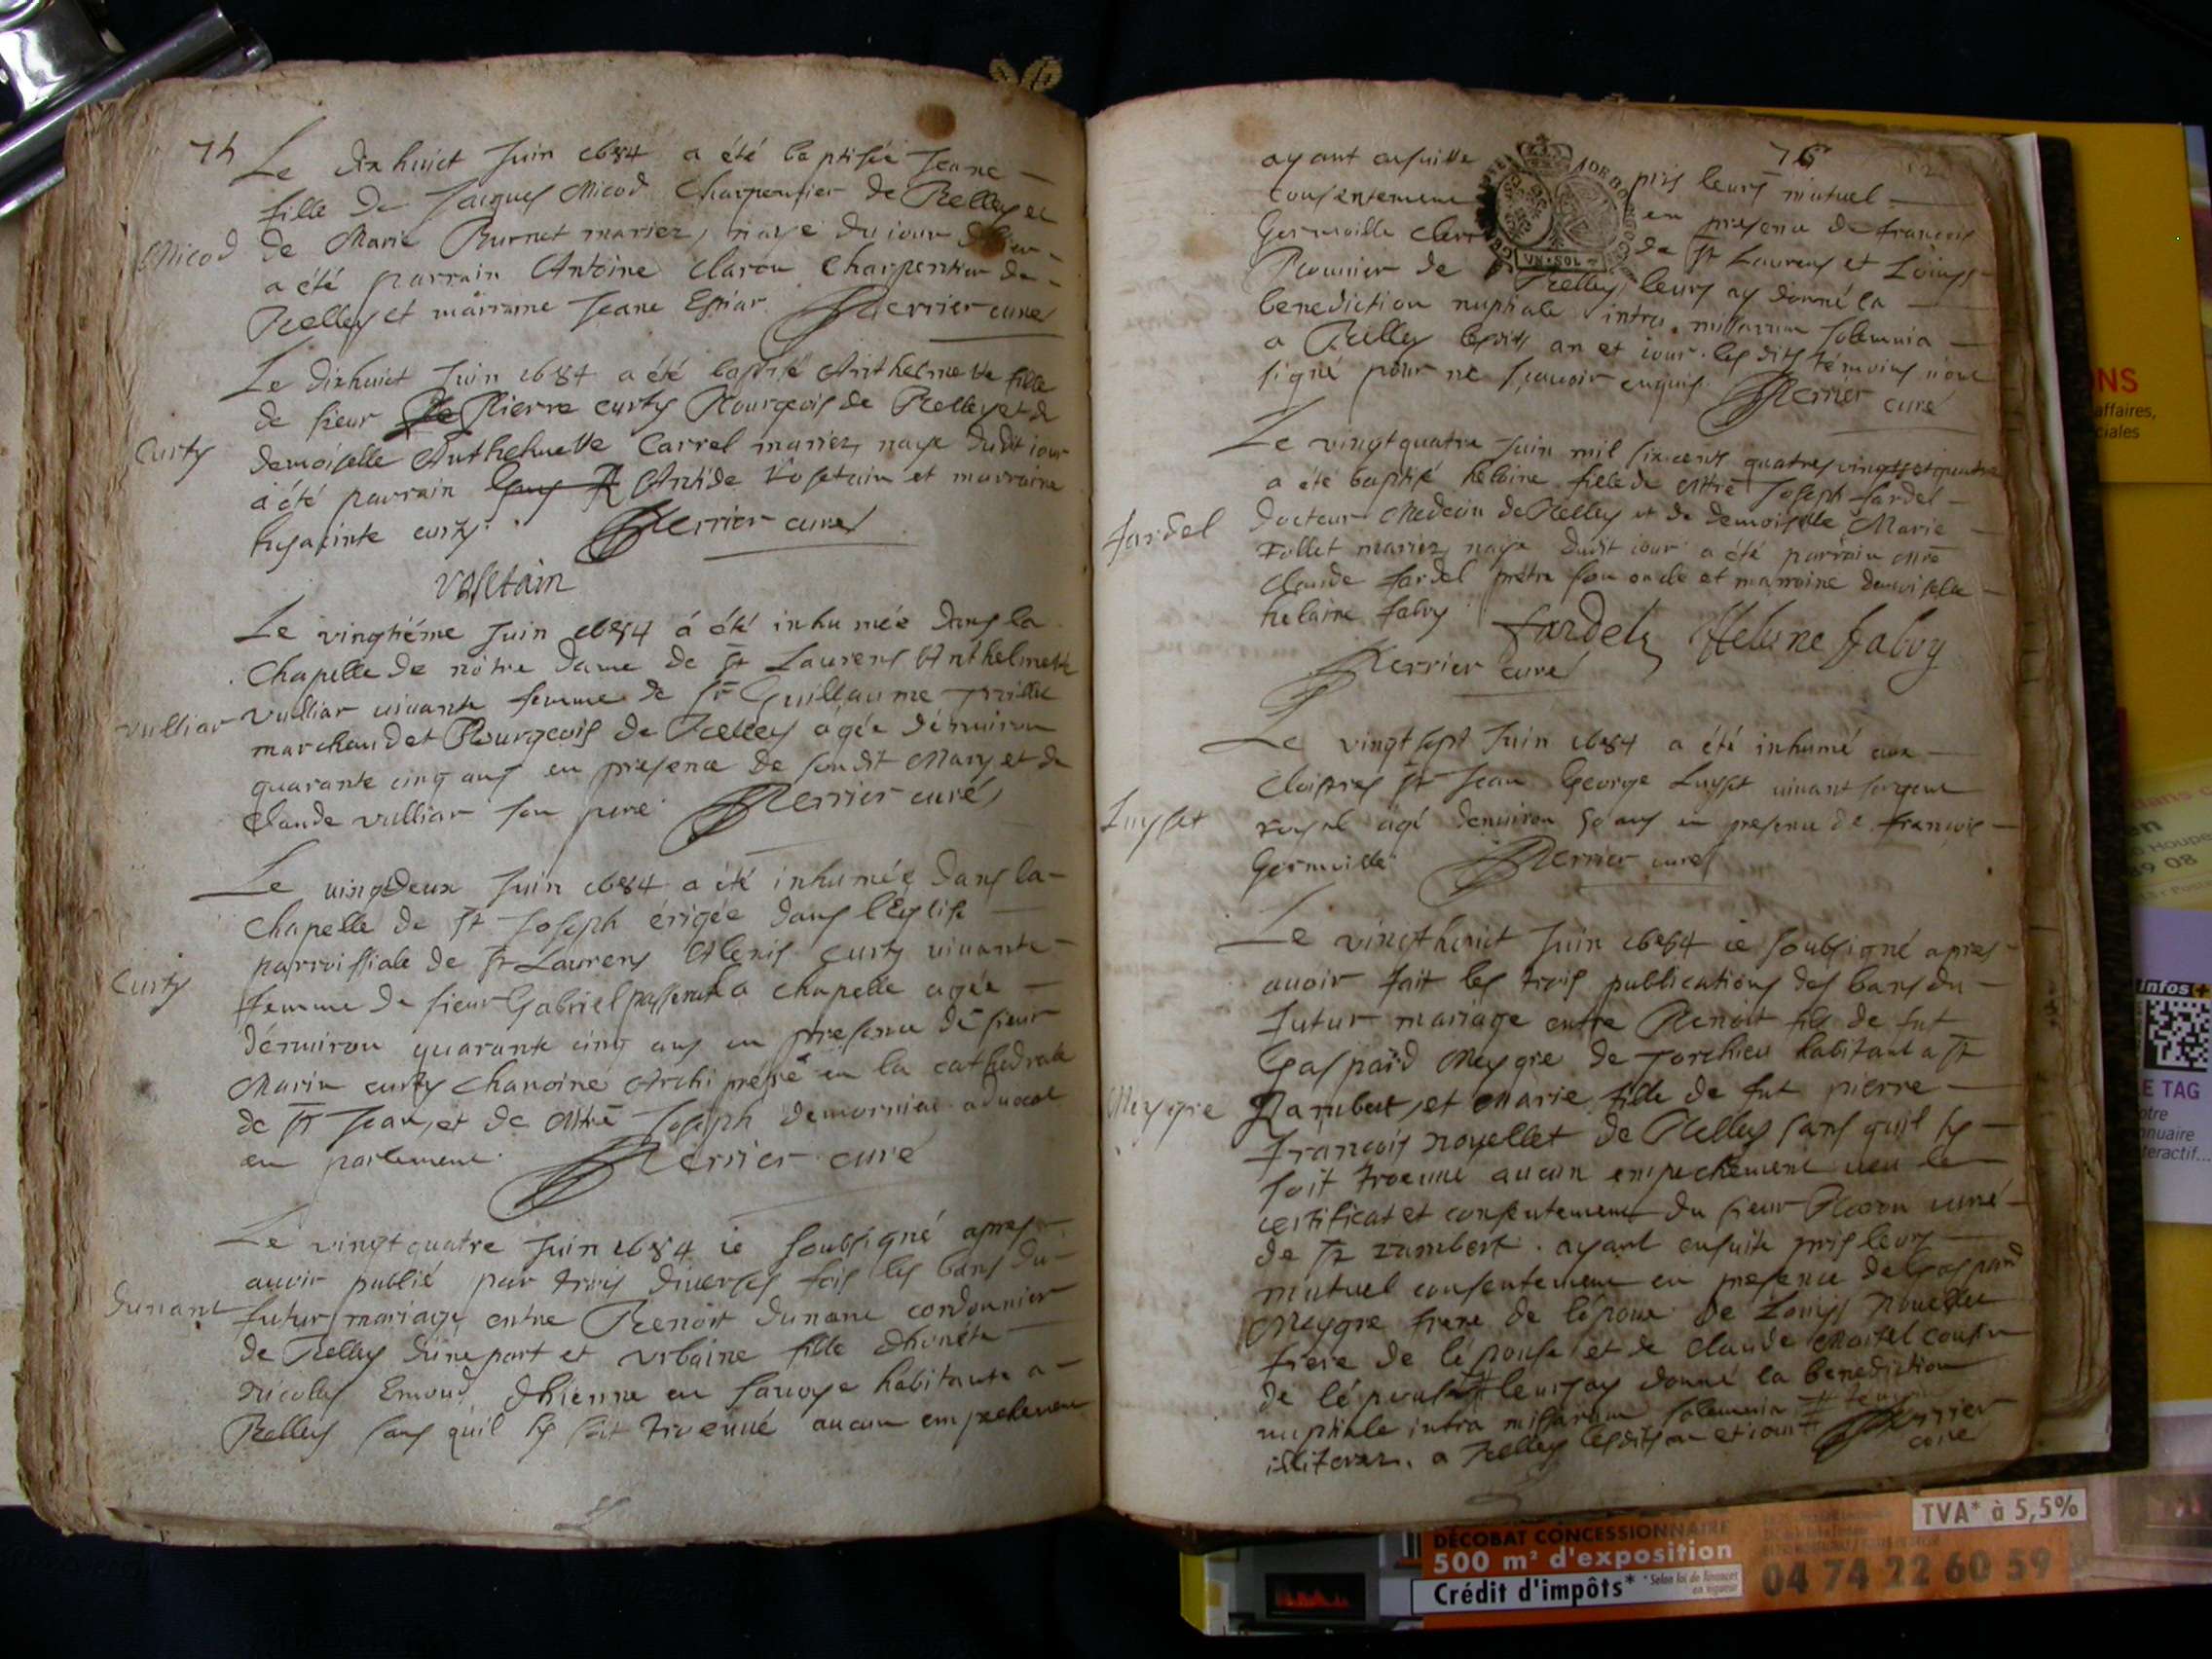 74
Le dix huict Juin 1684 a été baptisée Jeane
fille de Jacques Micod Charpentier de Belley et
Micod
de Marie Burnet mariez, naye du iour d'hier
a été parrain Antoine Claron Charpentier de
Belley et marraine Jeane Espiar. Perrier curé
Le dixhuict Juin 1684 a été baptisé Anthelmette fille
de sieur Pierre Curty Bourgeois de Belley et de
Curty
demoiselle Anthelmette Carrel mariez, naye dudit iour
a été parrain Antide Vosetain et marraine
hyacinte curty. Perrier curé
Vosetain
Le vingtiéme Juin 1684 á été inhumée dans la
chapelle de nôtre Dame de St Laurens Anthelmette
vulliar
vulliar vivante femme de sr Guillaume
marchand et Bourgeois de Belley agée dénuiron
quarante cinq ans en presence de son dit Mary et de
Claude vulliar son pere. Perrier curé
Le uingtdeux Juin 1684 a été inhumée dans la
chapelle de St Joseph érigée dans l'Eglise
parroissiale de St Laurens Alexis Curty uiuante
Curty
femme de sieur Gabriel passerat la chapelle agée
dénuiron quarante cinq ans en presence de sieur
Marin curty chanoine Archiprestre en la cathedrale
de St Jean, et de Mtre Joseph demornieu aduocat
en parlement. Perrier curé
Le vingt quatre Juin 1684 ie soubsigné apres
auoir publié par trois diverses fois les bans du
dunant
futur mariage entre Benoit dunant cordonnier
de Belley dune part et Urbaine fille dhonéte
Nicolas Emoud dhienne en sauoye habitante a
Belley sans quil sy soit trouué aucun empechement
76
ayant ensuitte pris leurs mutuel
consentement en presence de francois
Germaille clerc de St Laurens et Louys
Prounier de Belley, leurs ay donné la
UN·SOL
benediction nuptiale intra missarum solemnia
a Belley lesdits an et iour. les dits témoins n'ont
signé pour ne sçauoir enquis. Perrier curé
Le vingtquatre Juin mil six cents quatrevingts et quatre
a été baptisé helaine fille de Mtre Joseph fardel
fardel
docteur Medecin de Belley et de demoiselle Marie
Follet mariez, naye dudit iour a été parrain Mre
Claude fardel prétre son oncle et marraine demoiselle
helaine falvy
fardel Helene falvy
Perrier curé
Le vingt sept Juin 1684 a été inhumé aux
cloistres St Jean George Luyset uiuant sergent
Luyset
royal agé denuiron 50 ans en presence de francois
Germaille. Perrier curé
Le vingt huict Juin 1684 ie soubsigné apres
auoir fait les trois publications des bans du
futur mariage entre Benoit fils de fut
Gaspard Meygre de Torchieu habitant a St
Meygre
Rambert, et Marie fille de fut pierre
francois nouellet de Belley sans quil sy
soit trouué aucun empechement ueu le
certificat et consentement du sieur curé
de St rambert. ayant ensuite pris leurs
mutuel consentement en presence de Gaspard
Meygre frere de lépoux de Louys Nouellet
frere de lépouse et de claude Martel cousin
de lépouse # leurs ay donné la benediction
nuptiale intra missarum solemnia # temoins
illiterez. a Belley lesdits an et iour # Perrier
curé
NS
affaires,
ciales
infos+
LE TAG
DÉCOBAT CONCESSIONNAIRE
500 m² d'exposition
Crédit d'impôts* *Selon loi de finances
en vigueur
TVA* à 5,5%
04 74 22 60 59